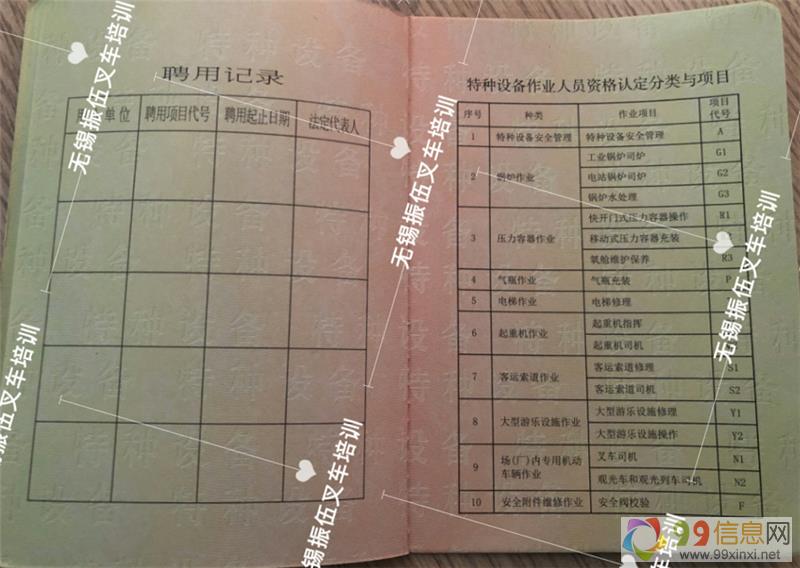 聘用记录
单位 聘用项目代号 聘用起止日期 法定代表人
特种设备作业人员资格认定分类与项目
序号 种类 作业项目 项目代号
1 特种设备安全管理 特种设备安全管理 A
2 锅炉作业 工业锅炉司炉 G1
电站锅炉司炉 G2
锅炉水处理 G3
3 压力容器作业 快开门式压力容器操作 R1
移动式压力容器充装
氧舱维护保养 R3
4 气瓶作业 气瓶充装 P
5 电梯作业 电梯修理
6 起重机作业 起重机指挥
起重机司机
7 客运索道作业 客运索道修理 S1
客运索道司机 S2
8 大型游乐设施作业 大型游乐设施修理 Y1
大型游乐设施操作 Y2
9 场(厂)内专用机动车辆作业 叉车司机 N1
观光车和观光列车司机 N2
10 安全附件维修作业 安全阀校验 F
无锡振伍叉车培训
无锡振伍叉车培训
无锡振伍叉车培训
无锡振伍叉车培训
锡振伍叉车培训
车培训
99信息网
www.99xinxi.net